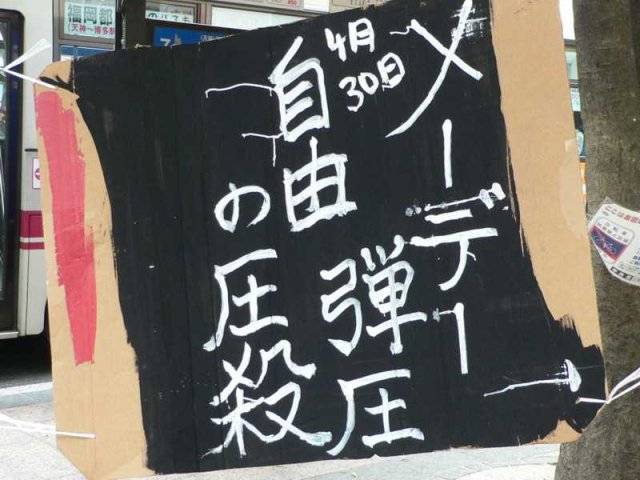 メーデー
4月
30日
弾圧
自由
の圧殺
福岡都
(天神～博多
のバス